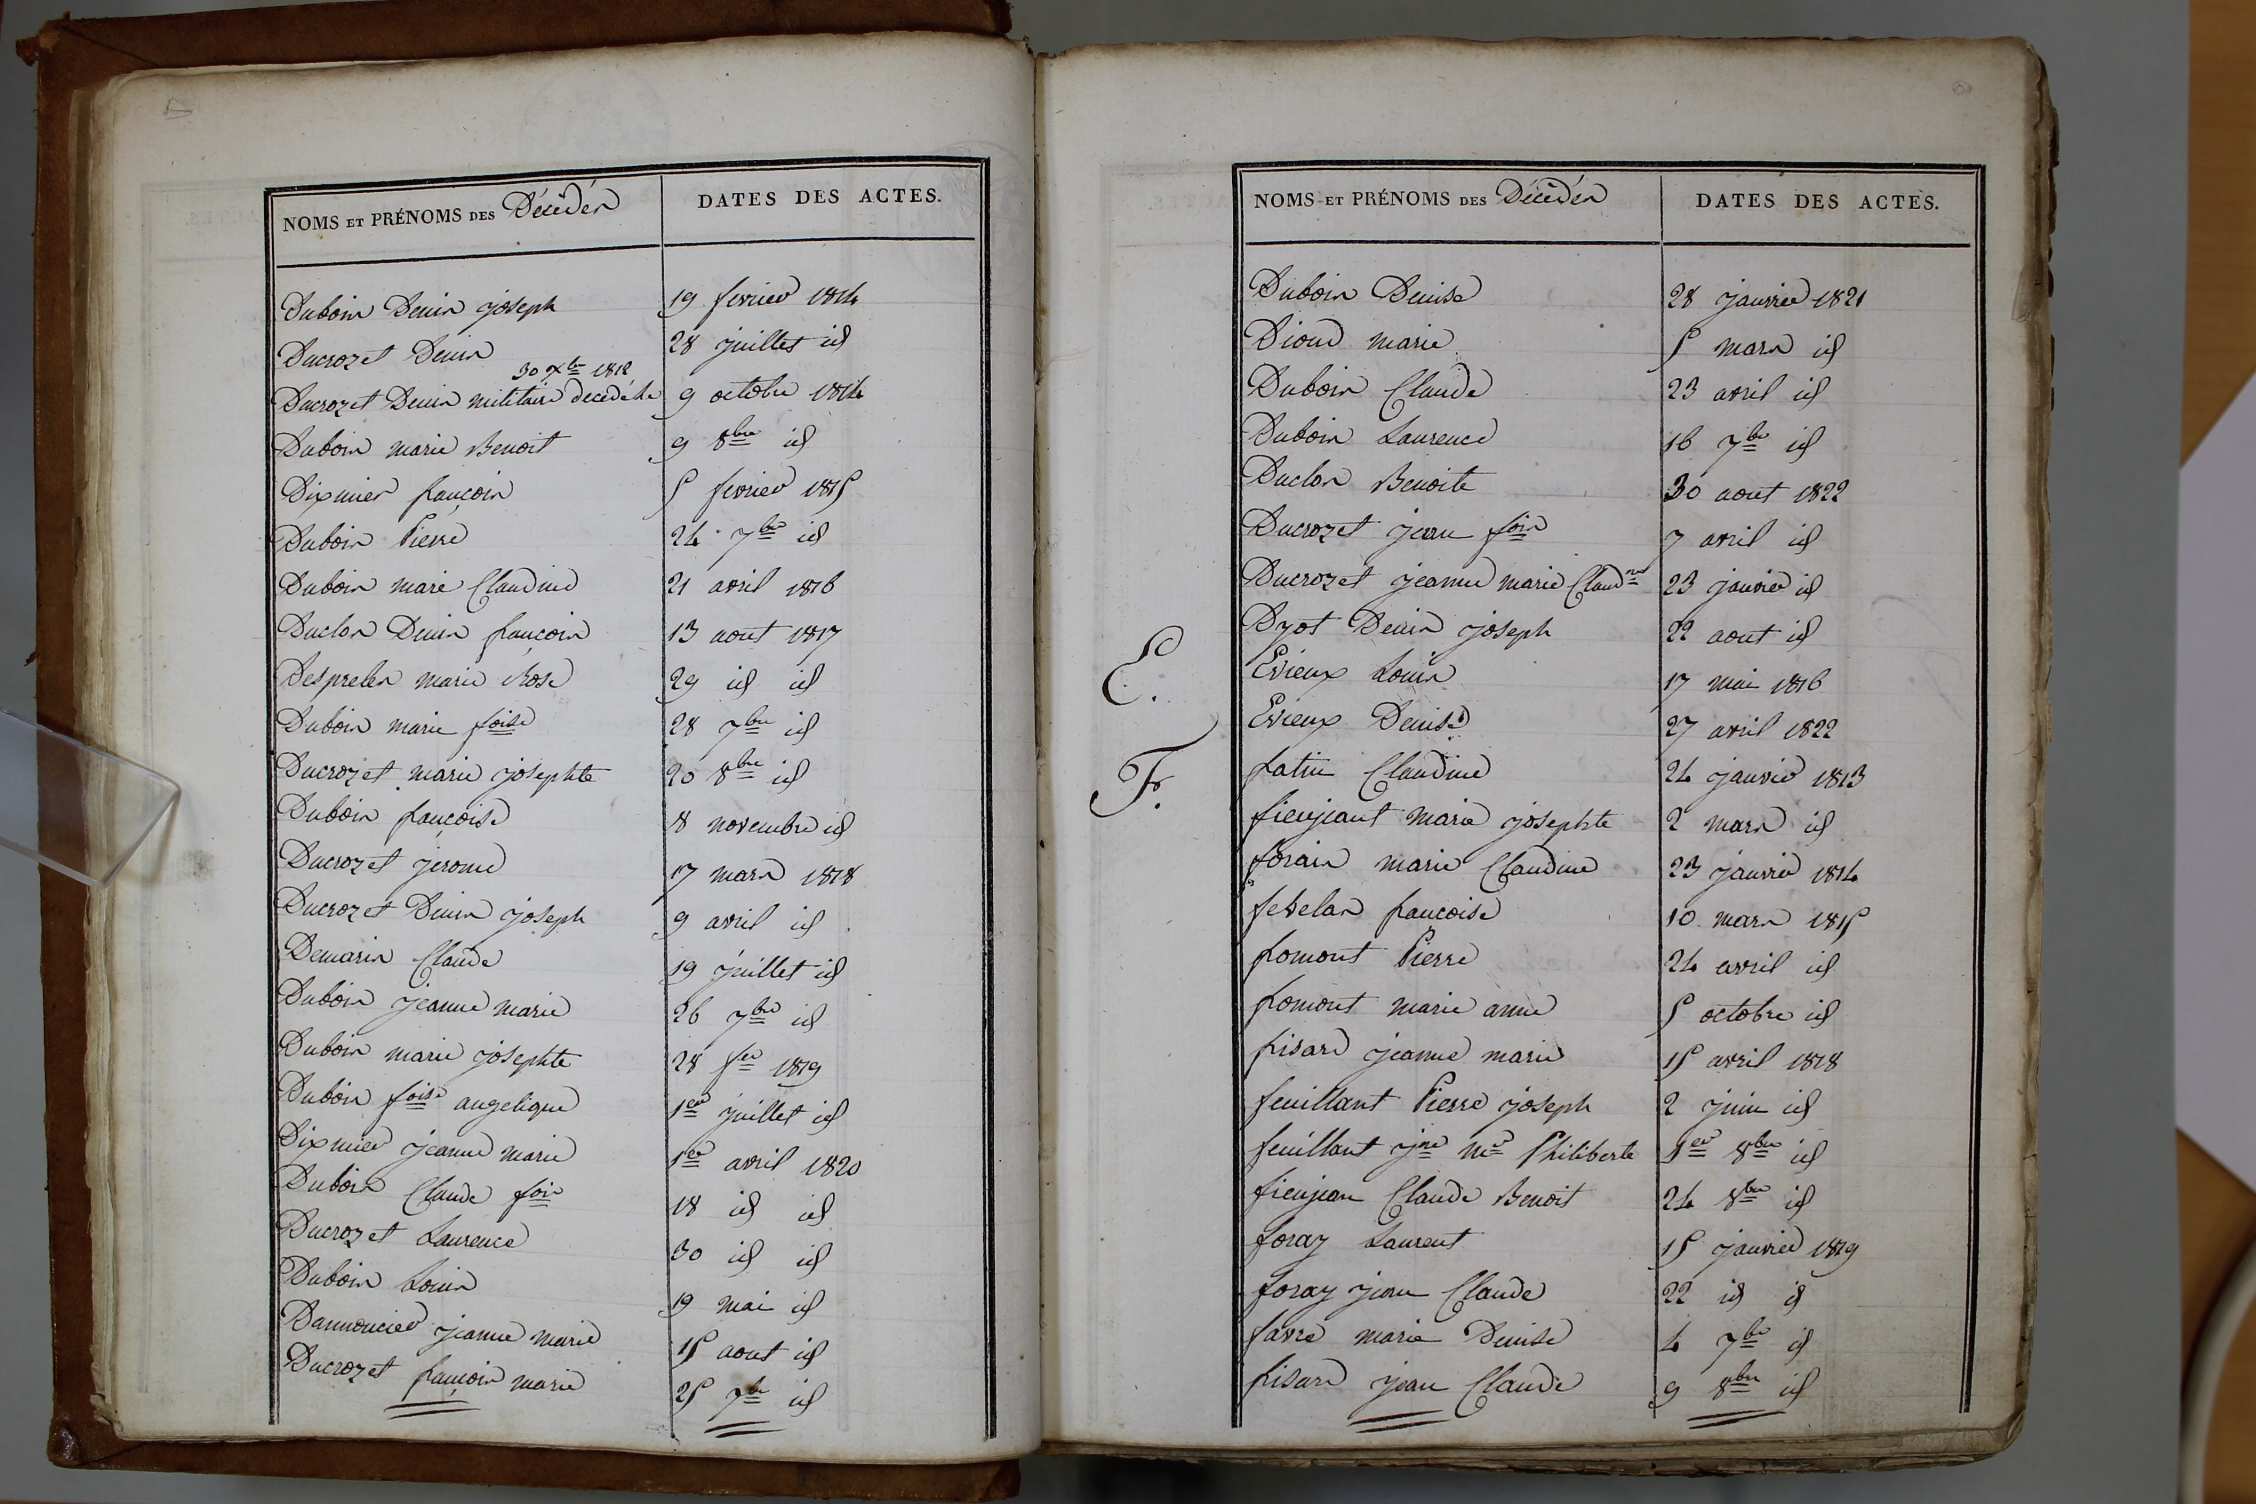 NOMS ET PRÉNOMS DES Décédés
DATES DES ACTES.
Dubois Denis joseph 19 fevrier 1814
Ducrozet Denis 28 juillet id
30 xbre 1812
Ducrozet Denis militaire decedé le 9 octobre 1814
Dubois marie Benoit 9 8bre id
Dixmier françois 5 fevrier 1815
Dubois Pierre 24 7bre id
Dubois marie Claudine 21 avril 1816
Duclos Denis françois 13 aout 1817
Despreles marie Rose 29 id id
Dubois marie foise 28 7bre id
Ducrozet marie josephte 20 8bre id
Dubois françoise 8 novembre id
Ducrozet jerome 17 mars 1818
Ducrozet Denis joseph 9 avril id
Demaris Claude 19 juillet id
Dubois jeanne marie 26 7bre id
Dubois marie josephte 28 fer 1819
Dubois foise angelique 1er juillet id
Dixmier jeanne marie 1er avril 1820
Dubois Claude fois 18 id id
Ducrozet Laurence 30 id id
Dubois Louis 19 mai id
Dannoncier jeanne marie 15 aout id
Ducrozet françois marie 25 7bre id
NOMS ET PRÉNOMS DES Décédés
DATES DES ACTES.
Dubois Denise 28 janvier 1821
Dioud marie 5 mars id
Dubois Claude 23 avril id
Dubois Laurence 16 7bre id
Duclos Benoite 30 aout 1822
Ducrozet jean fois 7 avril id
Ducrozet jeanne marie Claudne 23 janvier id
Dyot Denis joseph 22 aout id
E.
Evieux Louis 17 mai 1816
Evieux Denise 27 avril 1822
F.
fatin Claudine 24 janvier 1813
fieujeant marie josephte 2 mars id
forain marie Claudine 23 janvier 1814
fevelas françoise 10 mars 1815
fomont Pierre 24 avril id
fomont marie anne 5 octobre id
fisard jeanne marie 15 avril 1818
feuillant Pierre joseph 2 juin id
feuillant jne mie Philiberte 1er 8bre id
fieujean Claude Benoit 24 8bre id
foray Laurent 15 janvier 1819
foray jean Claude 22 id id
favre marie Denise 4 7bre id
fisard jean Claude 9 8bre id